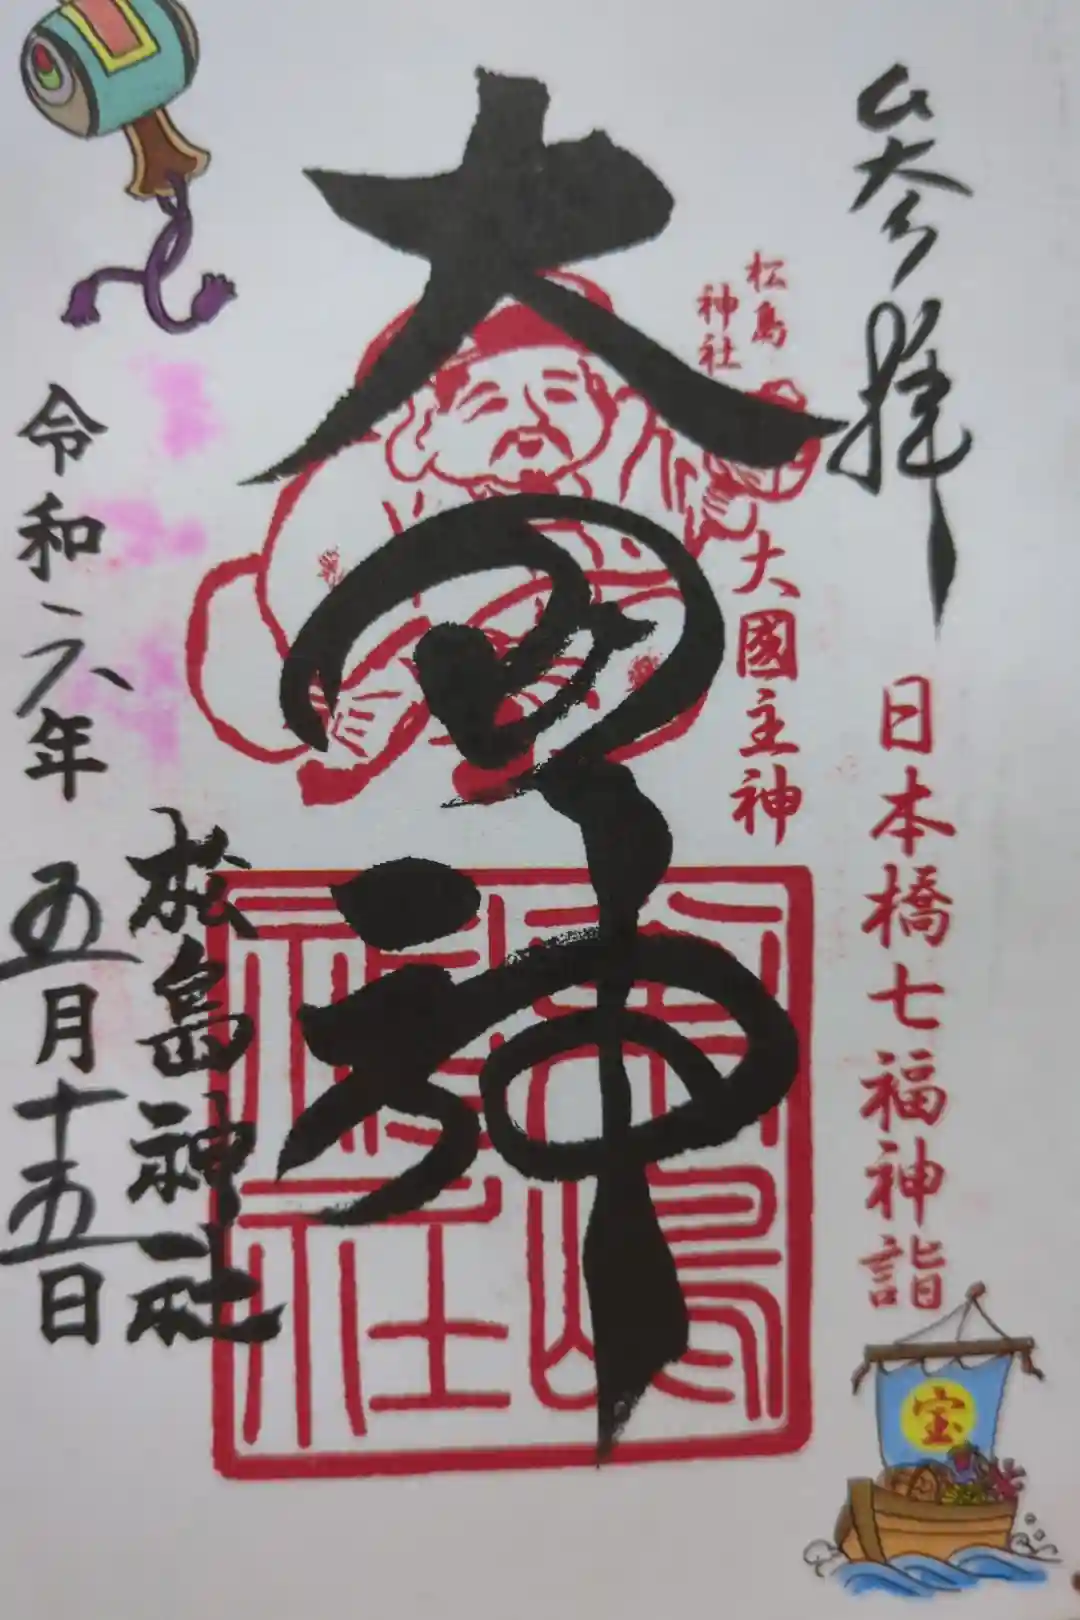 参拝
日本橋七福神詣
宝
松島
神社
大國主神
大黒神
松島神社
令和六年五月十五日